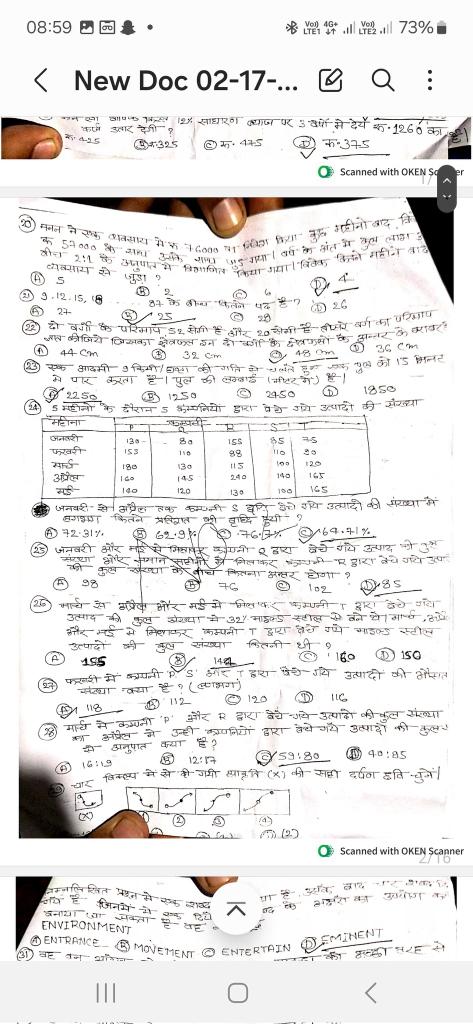 08:59
Vo)) LTE1 4G+ Vo)) LTE2 73%
New Doc 02-17-...
12% साधारण ब्याज पर 3 वर्षो में देय रू.1260 का
उधार देगी ?
रू.425 Ⓑ रू.325 Ⓒ रू. 475 Ⓓ रू.375
Scanned with OKEN Scanner
20 मनन ने एक व्यवसाय में रू 76000 का निवेश किया। कुछ महीनो बाद
रू 57000 के साथ उसके साथ जुड़ गया। वर्ष के अंत में कुल लाभ
बीच 2:1 के अनुपात में विभाजित किया गया। विवेक कितने महीने बाद
व्यवसाय से जुड़ा ?
Ⓐ 5 Ⓑ 2 Ⓒ 6 Ⓓ 4
21 9.12.15,18 87 के बीच कितने पद है ?
Ⓐ 27 Ⓑ 25 Ⓒ 28 Ⓓ 26
22 दो वर्गो के परिमाप 52 सेमी है और 20 सेमी है तीसरे वर्ग का परिमाप
ज्ञात कीजिये जिसका क्षेत्रफल इन दो वर्गो के क्षेत्रफलो के अन्तर के बराबर
Ⓐ 44 Cm Ⓑ 32 cm Ⓒ 48 cm Ⓓ 36 Cm
23 एक आदमी 9 किमी/घण्टा की गति से चलते हुए एक पुल को 15 मिनट
में पार करता है। पुल की लम्बाई (मीटर में) है।
Ⓐ 2250 Ⓑ 1250 Ⓒ 2450 Ⓓ 1850
24 5 महीनो के दौरान 5 कम्पनियो द्वारा बेचे गये उत्पादो की संख्या
महीना कम्पनी
P Q R S T
जनवरी 130 80 155 85 75
फरवरी 153 110 88 110 80
मार्च 180 130 115 100 120
अप्रैल 160 145 240 140 165
मई 140 120 130 100 165
जनवरी से अप्रैल तक कम्पनी S द्वारा बेचे गये उत्पादो की संख्या में
लगभग कितने प्रतिशत की वृद्धि हुयी ?
Ⓐ 72.31% Ⓑ 62.9% Ⓒ 76.7% Ⓓ 64.71%
25 जनवरी और मई में मिलाकर कम्पनी Q द्वारा बेचे गये उत्पाद की कुल
संख्या और समान महीनो में मिलाकर कम्पनी R द्वारा बेचे गये उत्पाद
की कुल संख्या के बीच कितना अन्तर होगा ?
Ⓐ 98 Ⓑ 76 Ⓒ 102 Ⓓ 85
26 मार्च से अप्रैल और मई में मिलाकर कम्पनी T द्वारा बेचे गये
उत्पाद की कुल संख्या में 32% माइल्ड स्टील से बने थे। मार्च, अप्रैल
और मई में मिलाकर कम्पनी T द्वारा बेचे गये माइल्ड स्टील
उत्पादो की कुल संख्या कितनी थी ?
Ⓐ 155 Ⓑ 144 Ⓒ 160 Ⓓ 150
27 फरवरी में कम्पनी P S और T द्वारा बेचे गये उत्पादो की औसत
संख्या क्या है ? (लगभग)
Ⓐ 118 Ⓑ 112 Ⓒ 120 Ⓓ 116
28 मार्च में कम्पनी 'P' और R द्वारा बेचे गये उत्पादो की कुल संख्या
का अप्रैल में उन्ही कम्पनियो द्वारा बेचे गये उत्पादो की कुल
से अनुपात क्या है ?
Ⓐ 16:19 Ⓑ 12:17 Ⓒ 59:80 Ⓓ 40:85
29 चार विकल्प में से दी गयी आकृति (x) की सही दर्पण छवि चुने।
(X) (2) (3) (4)
(2)
Scanned with OKEN Scanner
2/16
निम्नलिखित प्रश्न में एक शब्द
ENVIRONMENT
Ⓐ ENTRANCE Ⓑ MOVEMENT Ⓒ ENTERTAIN Ⓓ EMINENT
31